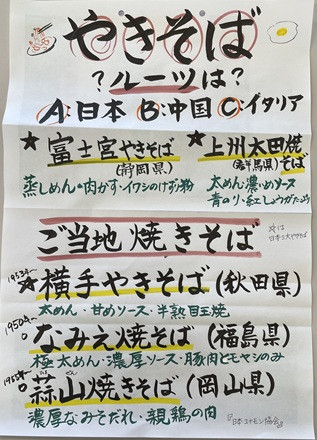 やきそば
?ルーツは?
A:日本 B:中国 C:イタリア
★富士宮やきそば
(静岡県)
蒸しめん&肉かす・イワシのけずり粉
★上州太田焼そば
(群馬県)
太めん濃いめソース
青のり・紅しょうが
ご当地焼きそば
☆は
日本三大やきそば
★横手やきそば(秋田県)
太めん・甘めソース・半熟目玉焼
1950年〜
○なみえ焼そば(福島県)
極太めん・濃厚ソース・豚肉とモヤシのみ
○蒜山焼きそば(岡山県)
濃厚なみそだれ・親鶏の肉
『日本コナモン協会』